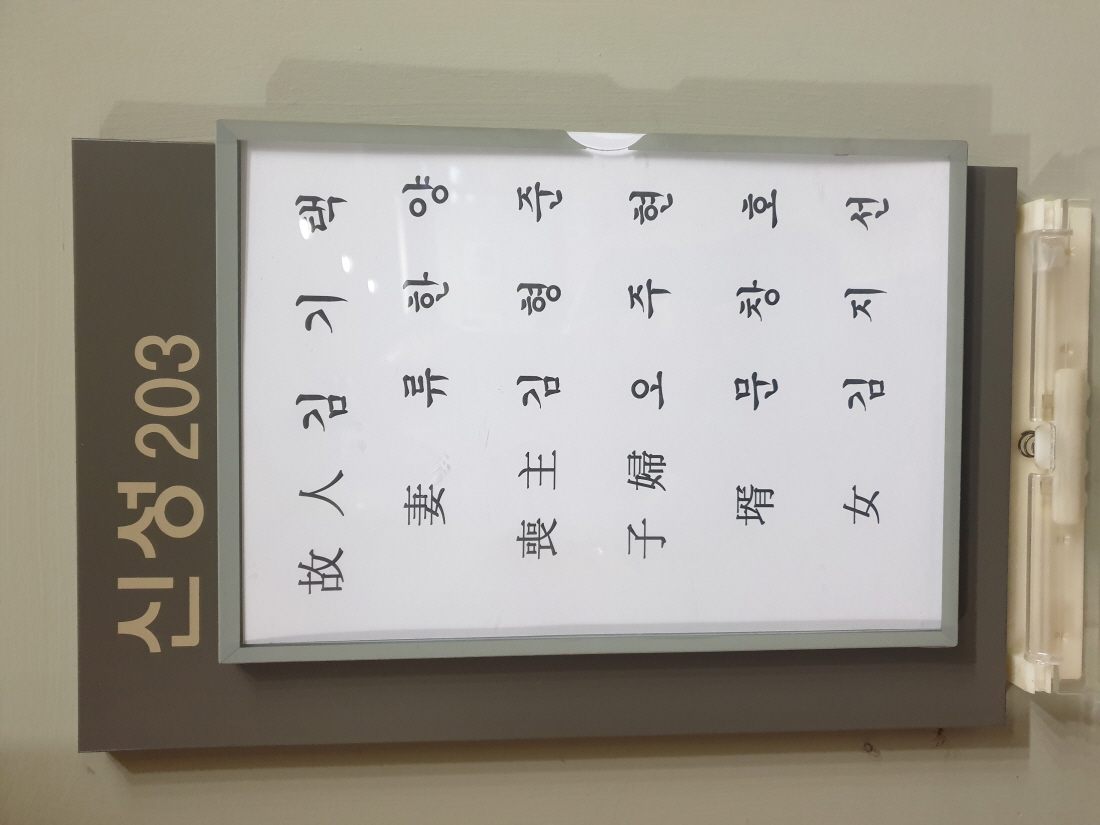 신성 203
故人 김기택
妻 류한양
喪主 김형준
子婦 오주현
壻 문창호
女 김지선